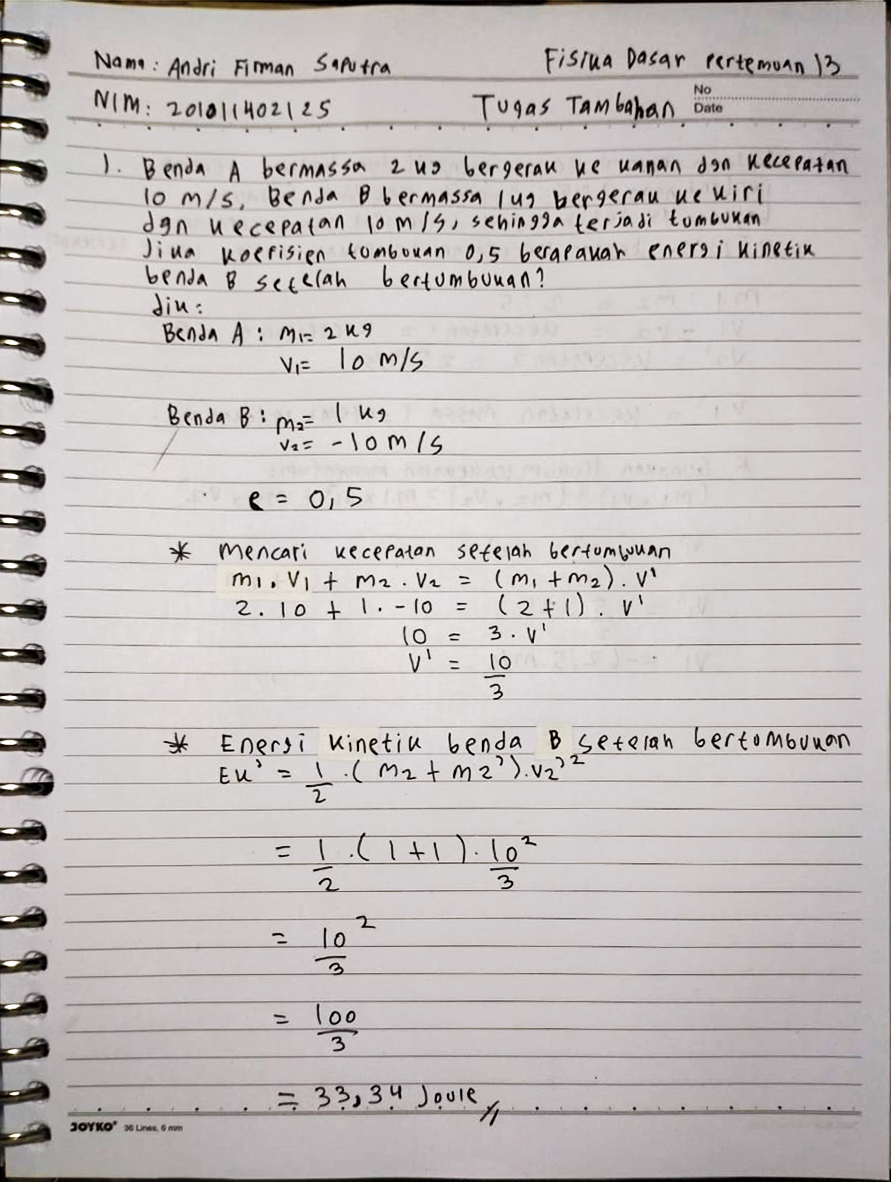 Nama : Andri Firman Saputra
Fisika Dasar Pertemuan 13
NIM : 201011402125
Tugas Tambahan
No
Date
1. Benda A bermassa 2 kg bergerak ke kanan dgn kecepatan
10 m/s, Benda B bermassa 1 kg bergerak ke kiri
dgn kecepatan 10 m/s, sehingga terjadi tumbukan
Jika koefisien tumbukan 0,5 berapakah energi kinetik
benda B setelah bertumbukan?
dik :
Benda A : m₁ = 2 kg
v₁ = 10 m/s
Benda B : m₂ = 1 kg
v₂ = -10 m/s
e = 0,5
* Mencari kecepatan setelah bertumbukan
m₁ . v₁ + m₂ . v₂ = (m₁ + m₂) . v'
2 . 10 + 1 . -10 = (2+1) . v'
10 = 3 . v'
v' = 10/3
* Energi kinetik benda B setelah bertumbukan
Ek' = 1/2 . (m₂ + m2') . v₂'²
= 1/2 . (1+1) . 10²/3
= 10²/3
= 100/3
= 33,34 Joule //
JOYKO® 36 Lines, 6 mm